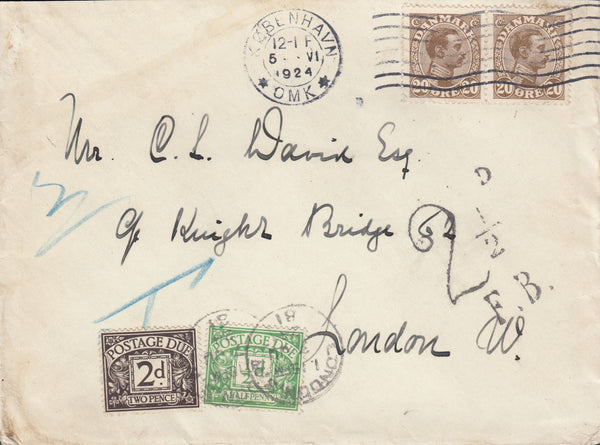 KØBENHAVN
12-1 F
5 VI
1924
OMK
DANMARK DANMARK
20 ØRE 20 20 ØRE 20
Mr. C. L. David Esq
c/o Knight Bridge 62
London W.
F.B.
T
POSTAGE DUE
2d
TWO PENCE
POSTAGE DUE
½d
HALF PENNY